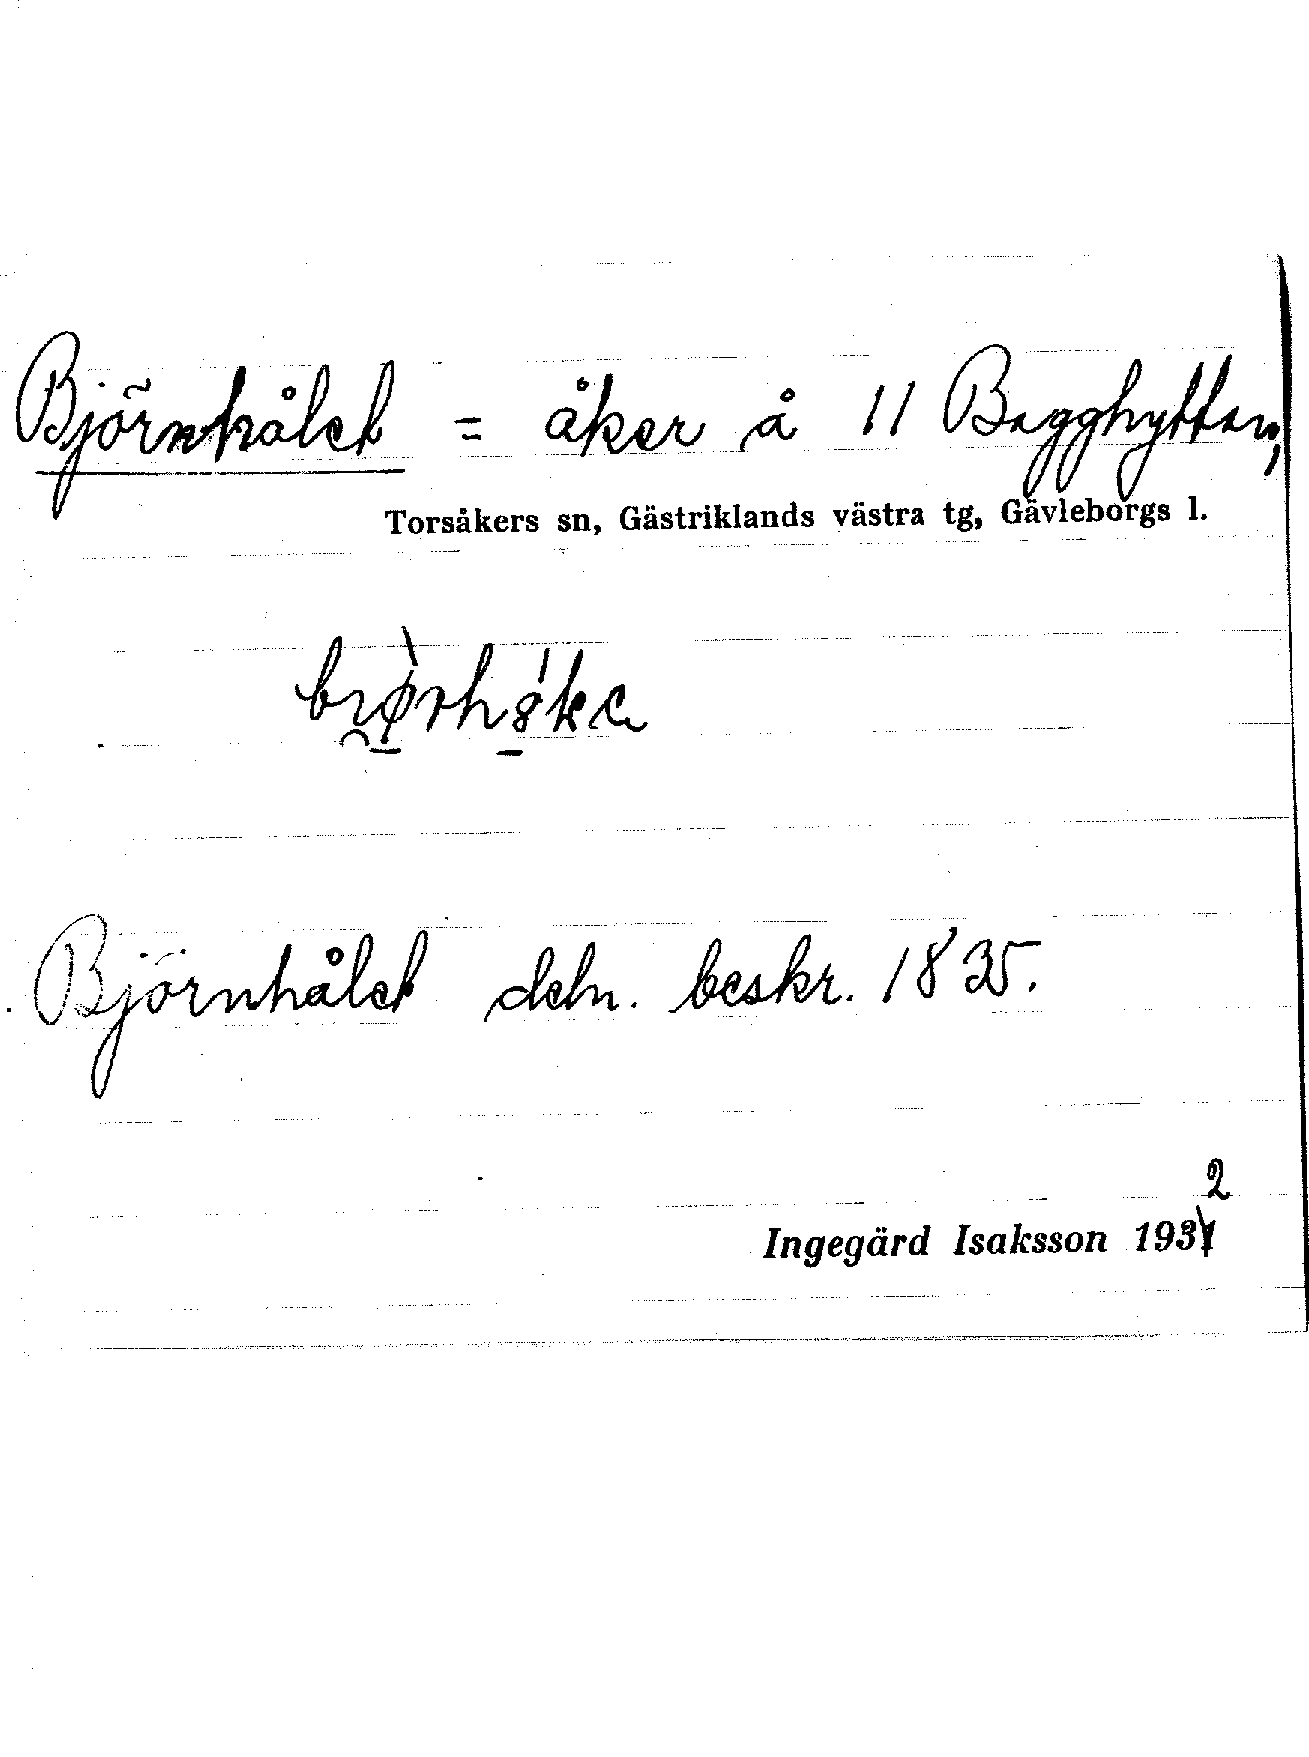 Björnhålet = åker å 11 Bagghyttan,
Torsåkers sn, Gästriklands västra tg, Gävleborgs l.
Björnhålet deln. beskr. 1835.
2
Ingegärd Isaksson 1931